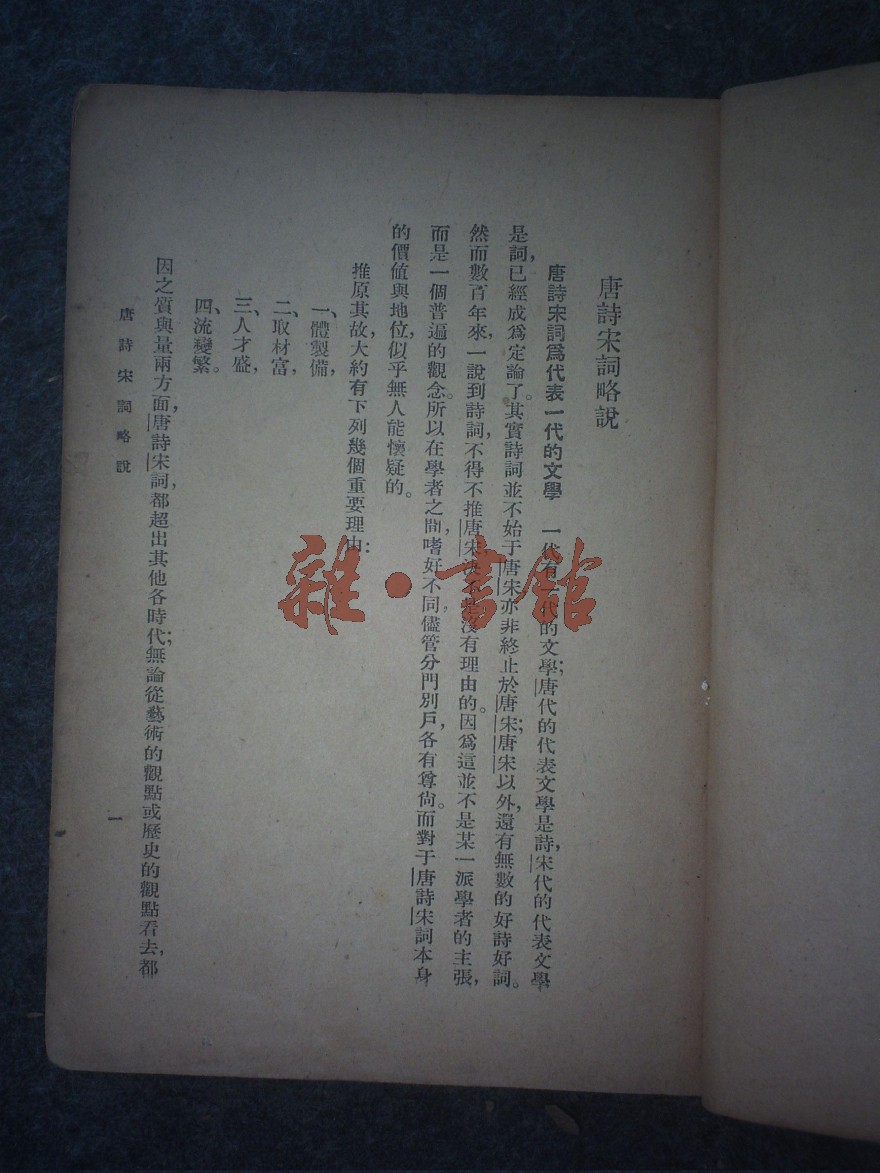 唐詩宋詞略說
唐詩宋詞爲代表一代的文學　一代有一代的文學；唐代的代表文學是詩，宋代的代表文學
是詞，已經成爲定論了。其實詩詞並不始于唐宋，亦非終止於唐宋；唐宋以外，還有無數的好詩好詞。
然而數百年來，一說到詩詞，不得不推唐宋，決不是沒有理由的。因爲這並不是某一派學者的主張，
而是一個普遍的觀念。所以在學者之間，嗜好不同，儘管分門別戶，各有尊尙。而對于唐詩宋詞本身
的價値與地位，似乎無人能懷疑的。
推原其故，大約有下列幾個重要理由：
一、體製備，
二、取材富，
三、人才盛，
四、流變繁。
因之質與量兩方面，唐詩宋詞，都超出其他各時代；無論從藝術的觀點或歷史的觀點看去，都
唐詩宋詞略說
一
雜·書館